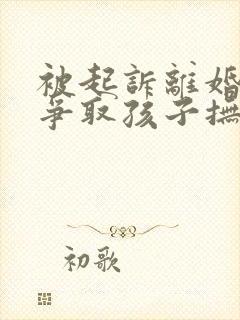 被起訴離婚
爭取孩子撫
初歌